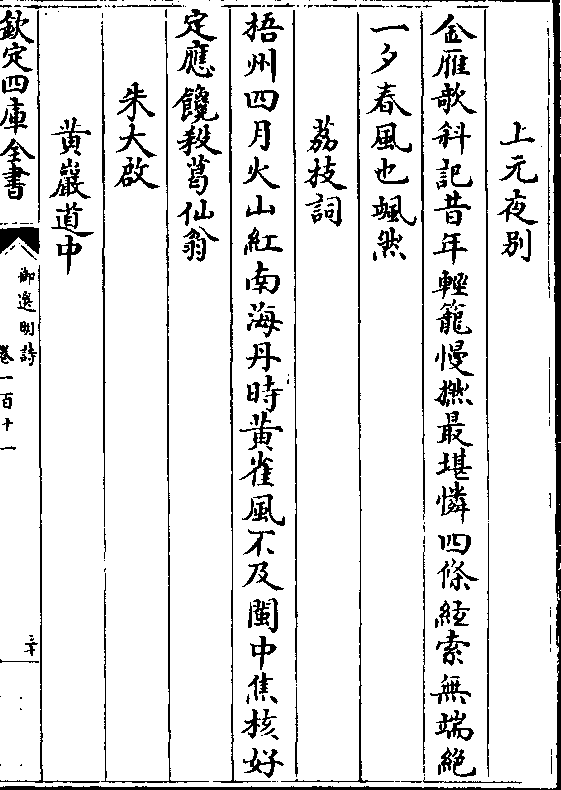 上元夜别
金雁歌科記昔年輕籠慢撚最堪憐四條絃索無端絶
一夕春風也颯然
荔枝詞
梧州四月火山紅南海丹時黄雀風不及閩中焦核好
定應饞殺葛仙翁
朱大啟
黄巖道中
欽定四庫全書
御選明詩
卷一百十一
三十